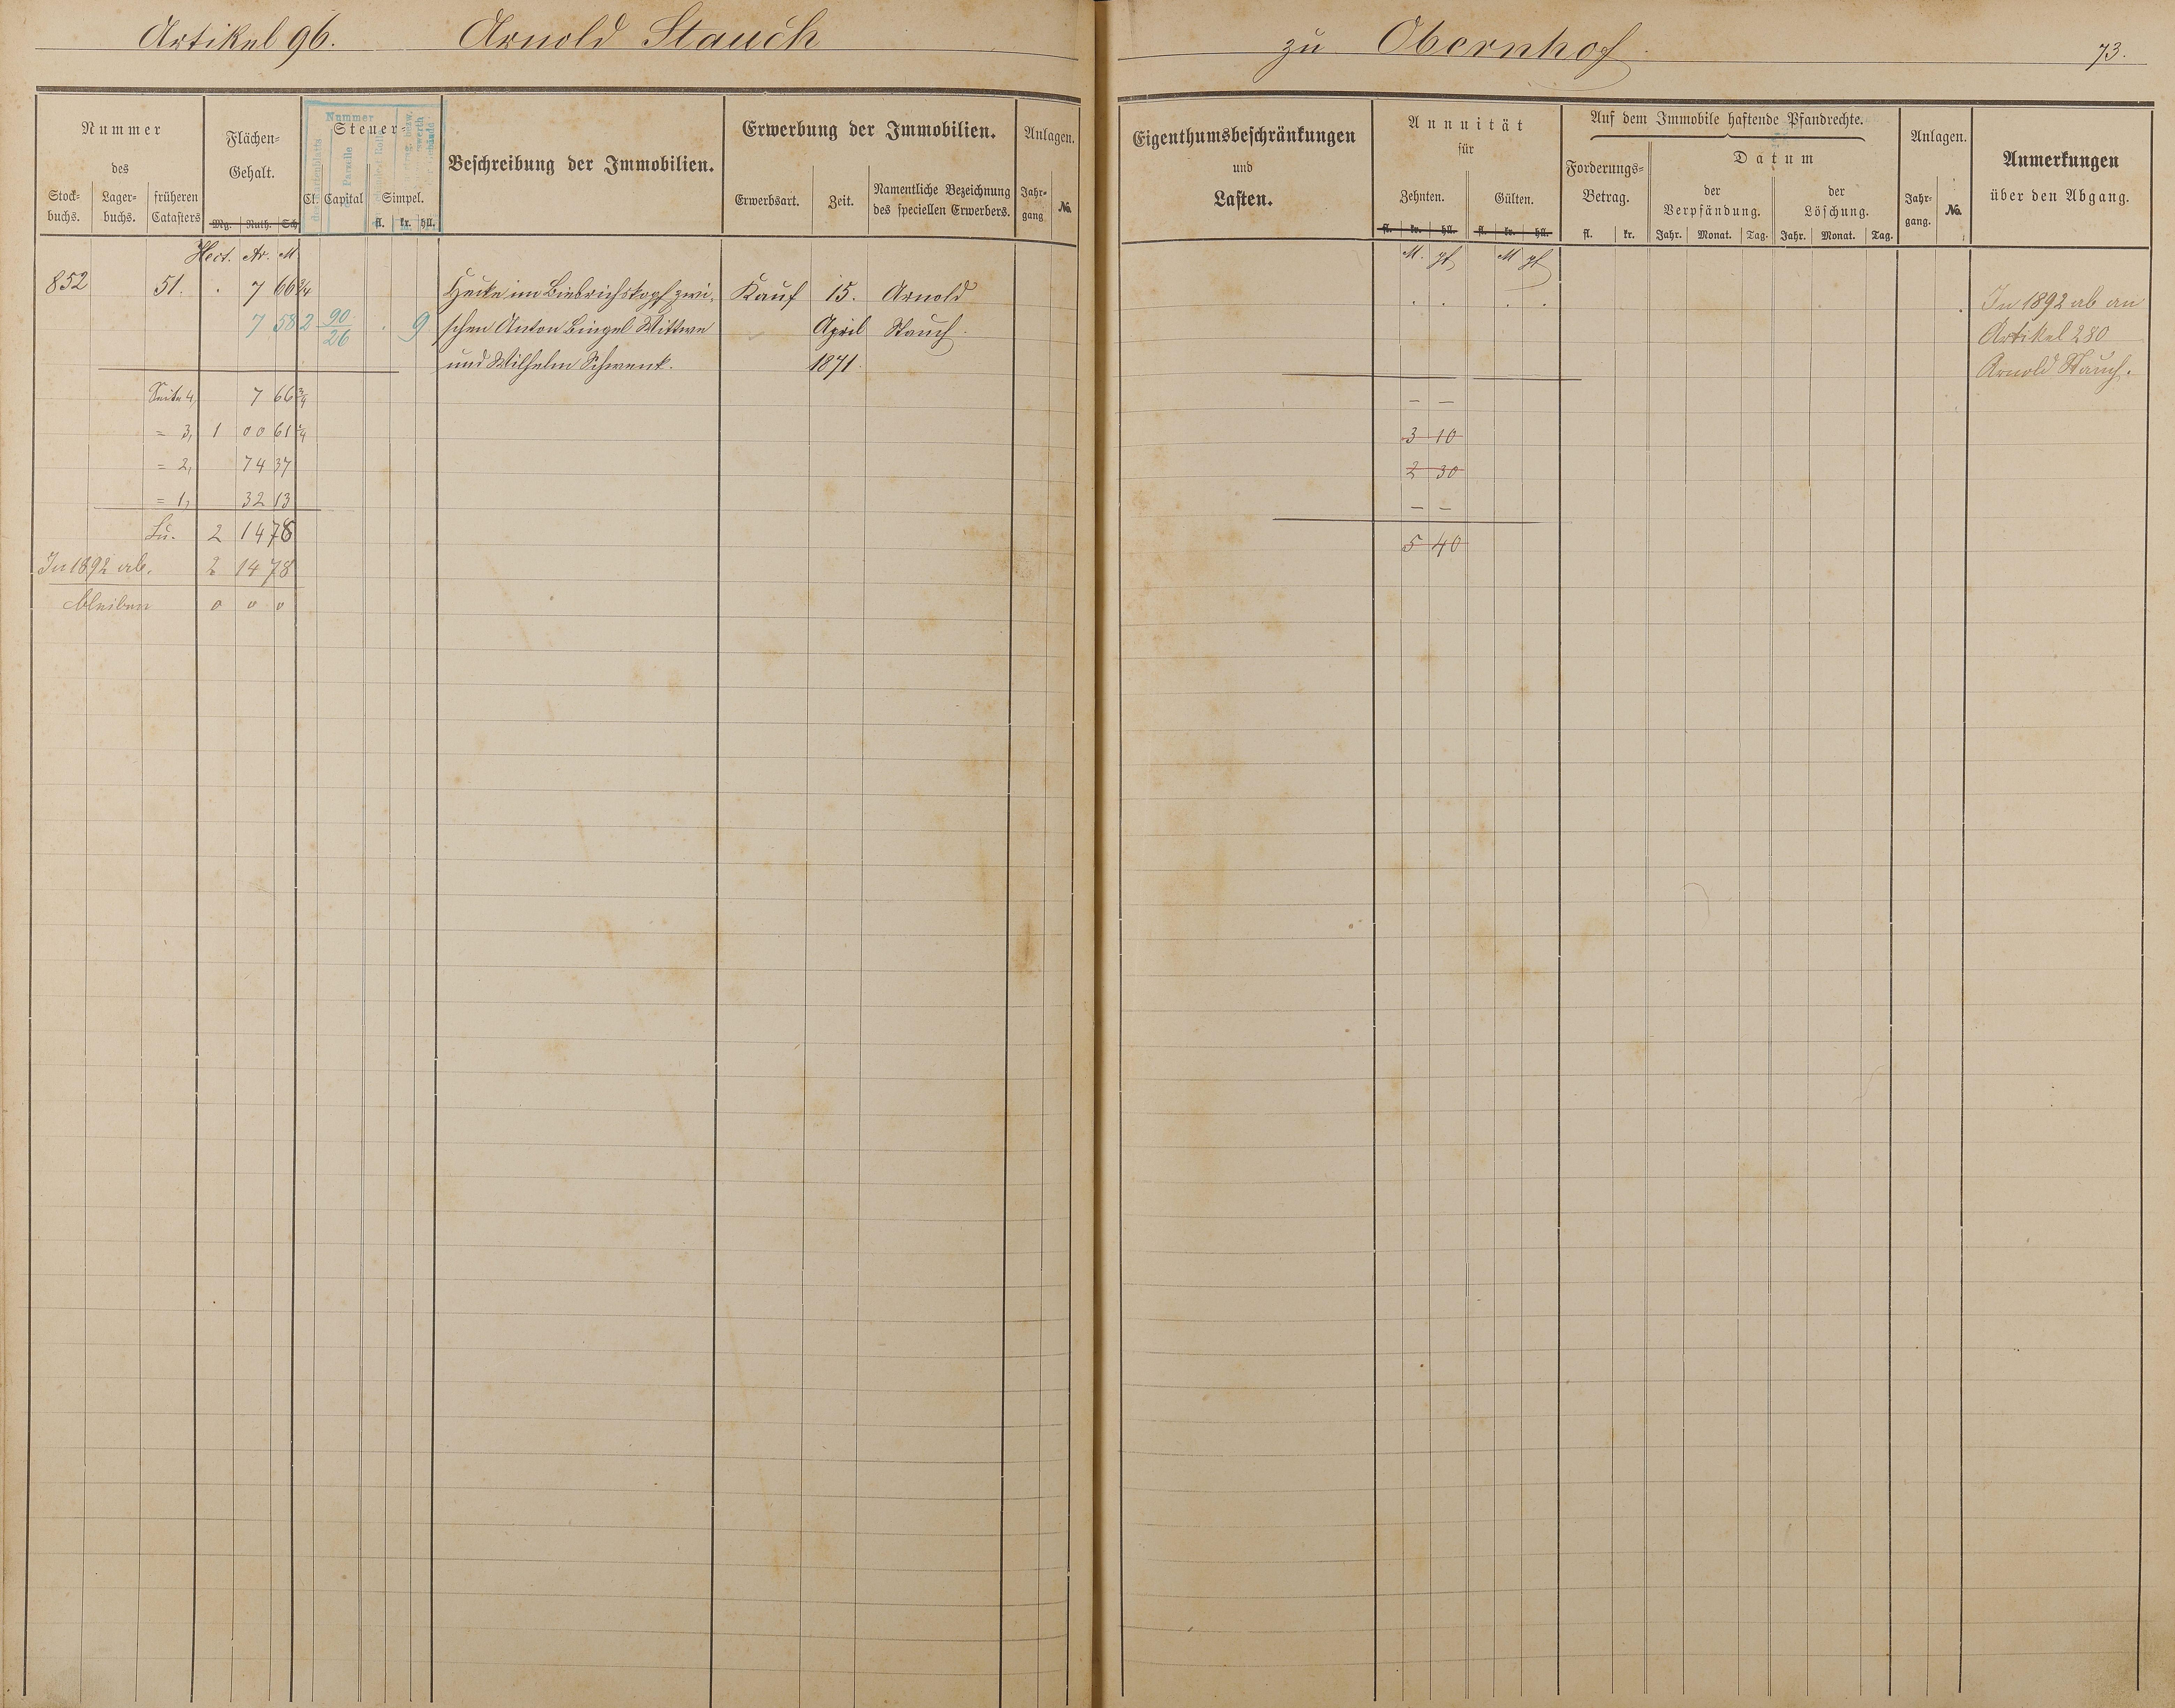 Artikel 96. Arnold Stauch zu Obernhof 73.
Nummer
des
Stock-
buchs.
Lager-
buchs.
früheren
Catasters
Flächen-
Gehalt.
Mg. Ruth. Sch
Nummer
Steuer-
Cl. Capital Simpel.
fl. kr. hll.
Beschreibung der Immobilien.
Erwerbung der Immobilien.
Erwerbsart. Zeit.
Namentliche Bezeichnung
des speciellen Erwerbers.
Anlagen.
Jahr-
gang
No.
Eigenthumsbeschränkungen
und
Lasten.
Annuität
für
Zehnten. Gülten.
fl. kr. hll. fl. kr. hll.
Auf dem Immobile haftende Pfandrechte.
Forderungs-
Betrag.
fl. kr.
Datum
der
Verpfändung.
der
Löschung.
Jahr. Monat. Tag. Jahr. Monat. Tag.
Anlagen.
Jahr-
gang.
No.
Anmerkungen
über den Abgang.
Hect. Ar. M
M. pf M pf
852 51. . 7 66 3/4 Hecke im Biebrichskopf zwi- Kauf 15. Arnold . . . . In 1892 ab an
7 58 2 90/26 . 9 schen Anton Bingel Wittwe April Stauch. Artikel 280
und Wilhelm Schwenk. 1871. Arnold Stauch.
Seite 4, 7 66 3/4 – –
= 3, 1 00 61 1/4 3 10
= 2, 74 37 2 30
= 1, 32 13 – –
Su. 2 14 78 5 40
In 1892 ab. 2 14 78
bleiben 0 0 0